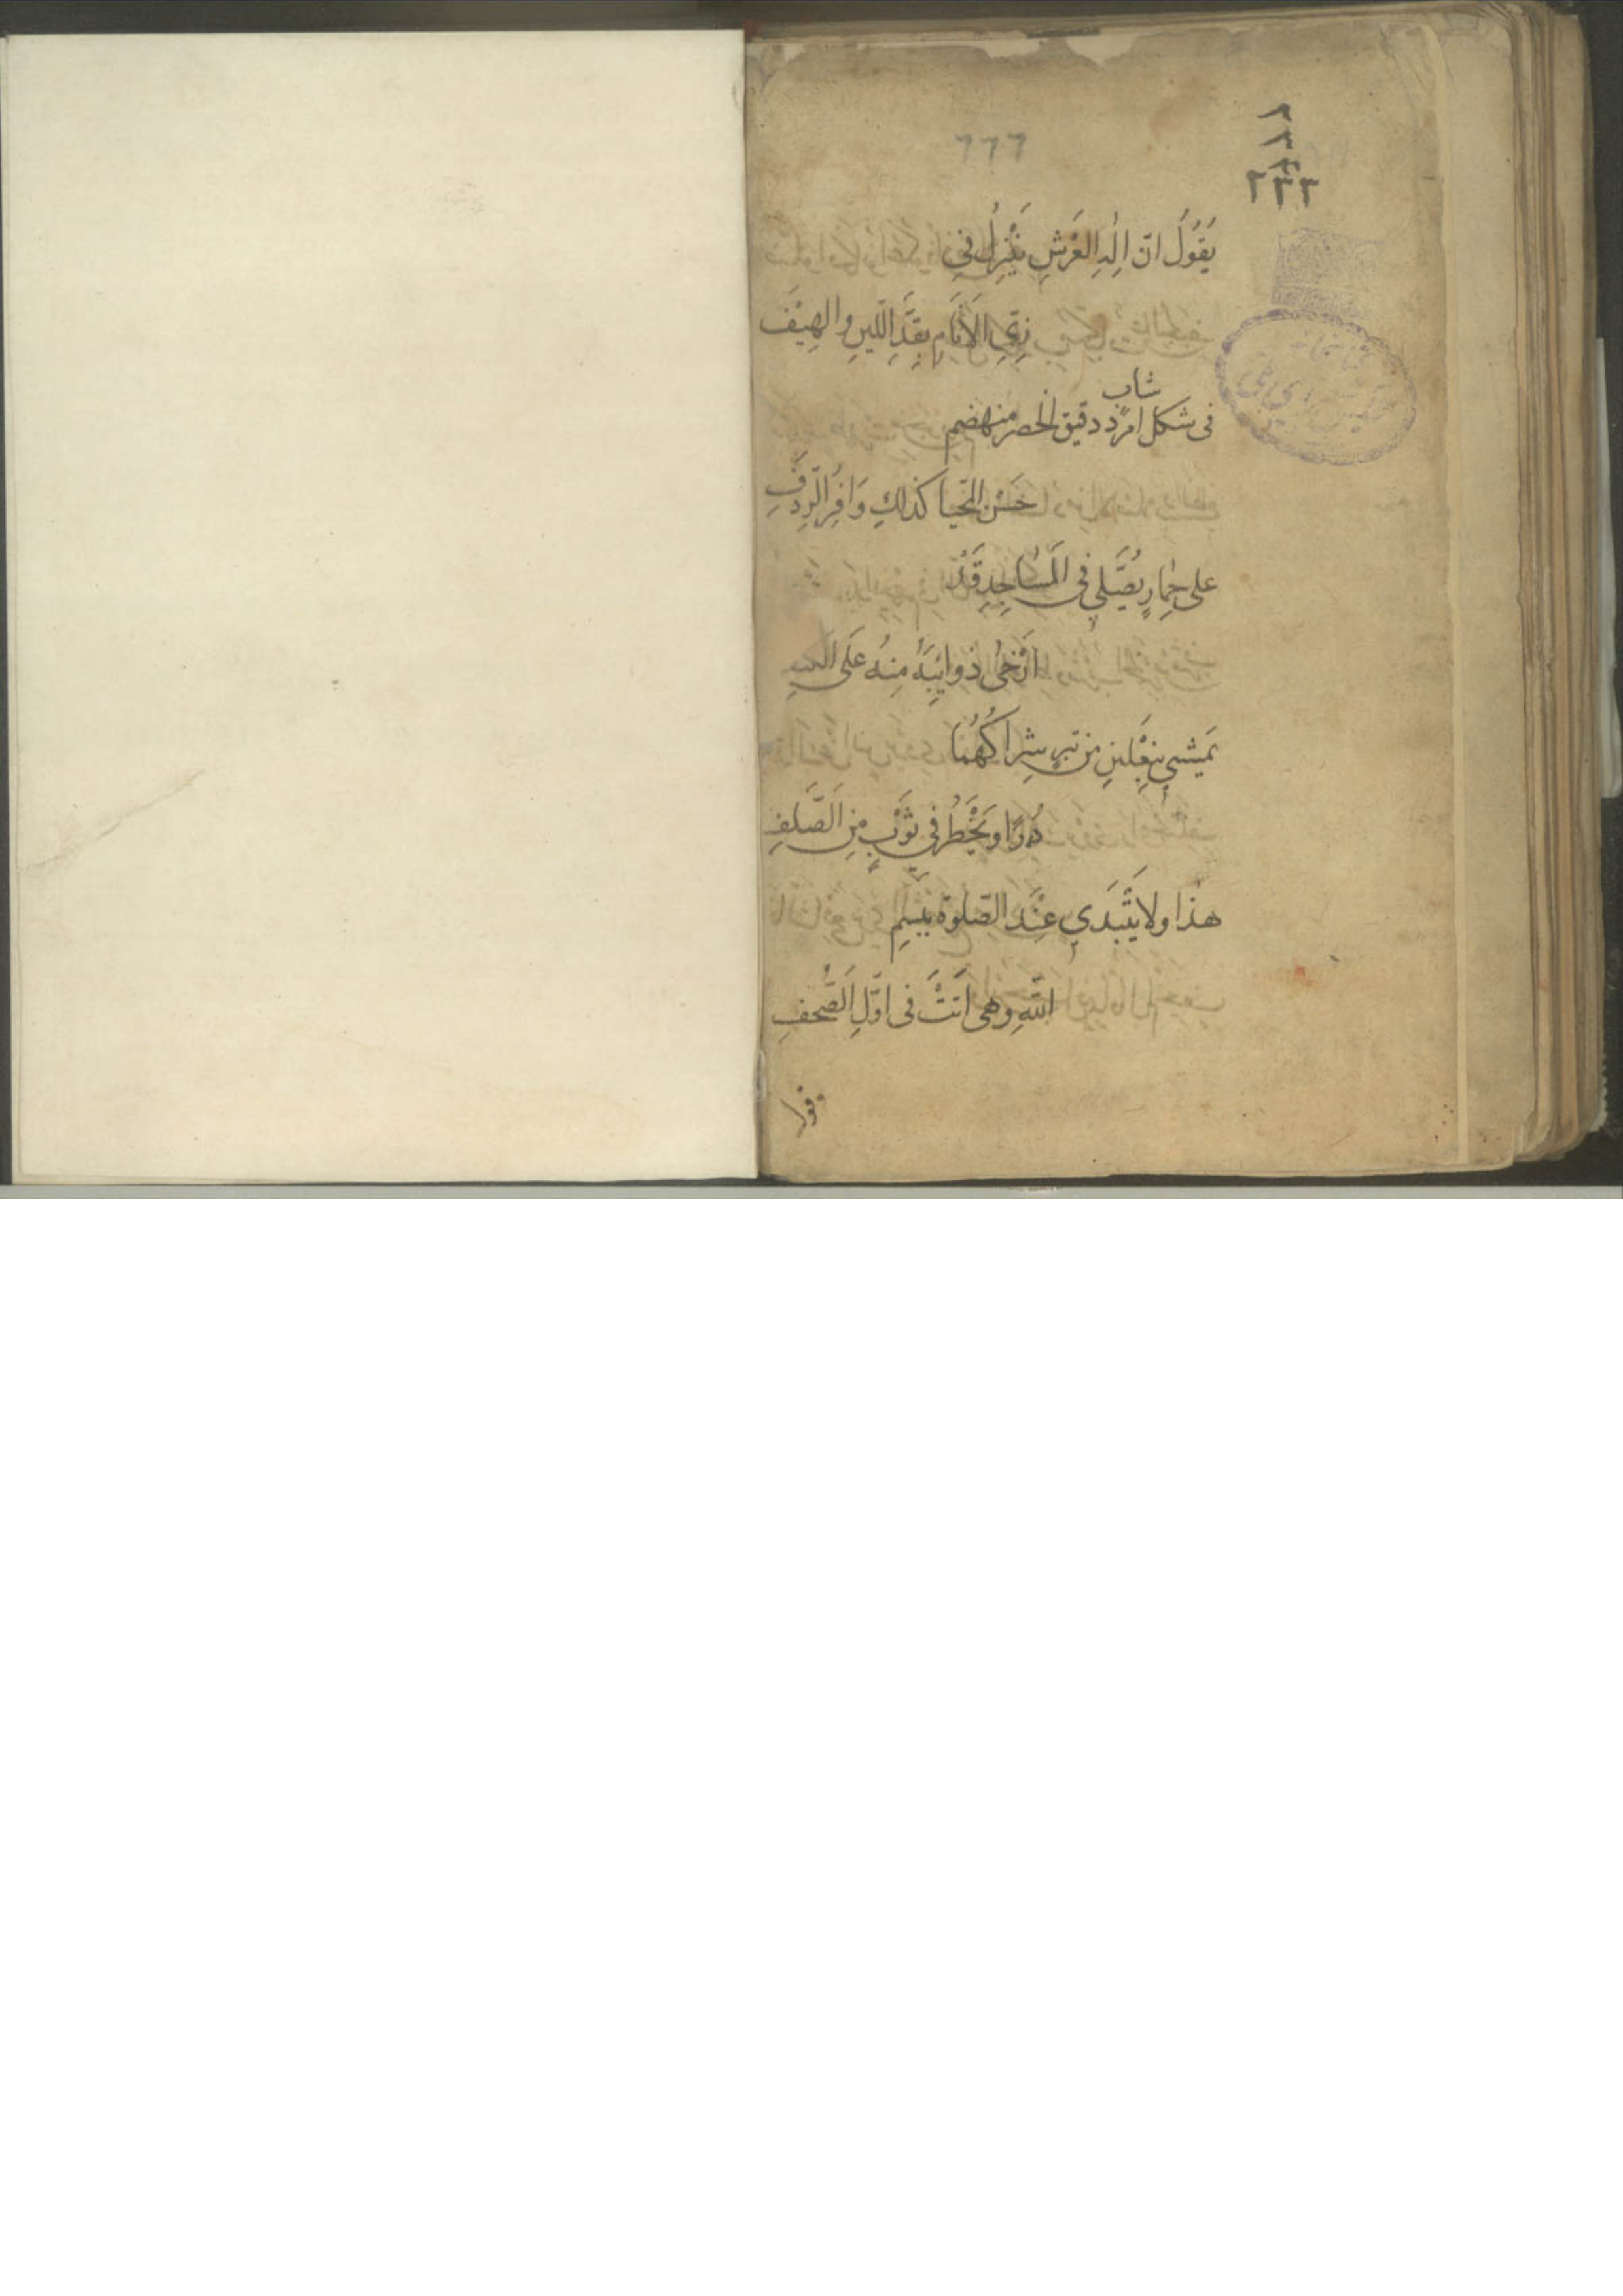 ٦٦٦
٢٣٢
يَقُولُ انّ الٰهِ العَرْشِ يَنْزِلُ فِي
زِيِّ الأَنَامِ بِقَدِّ اللّينِ والهِيَفِ
شاب
فى شكل امردٍ دقيق الخصر منهضم
حَسْن المّحيا كذلكِ وَافِرُ الّرِدَفِ
على حِمارٍ يُصَّلي فى المَسٰاجِدِ قَدْ
ارَخىٰ ذوايِبَهُ مِنهُ عَلَى
يَمشي بِنعْلينِ من تبرٍ شِراكُهُمٰا
دُرًا ويَخْطُرُ فى ثَوْبٍ مِنَ الصَّلَفِ
هذا ولا يَبْتَدي عِنْدَ الصّلوة بِبسِمِ
اللّٰهِ وهى اَتَتْ فى اوَّلِ الصُّحفِ